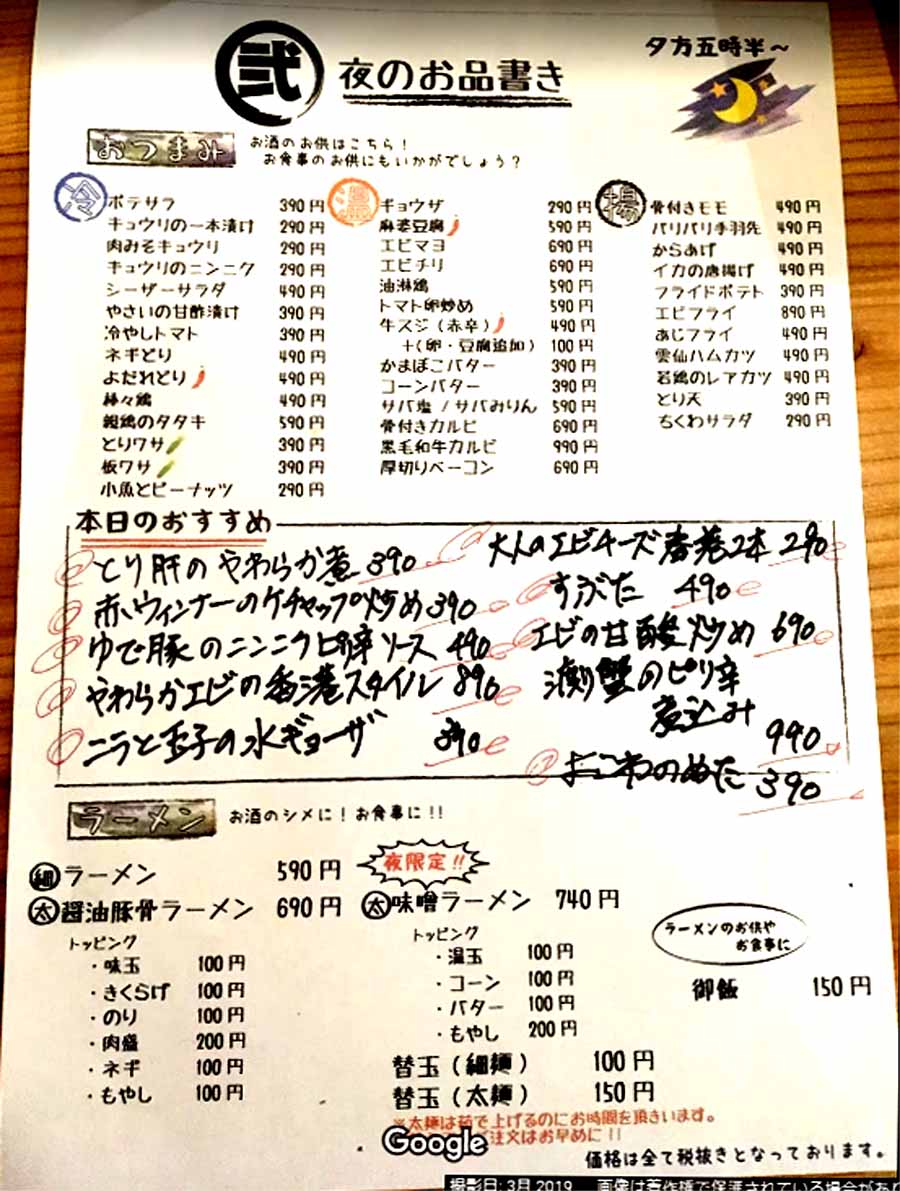 夕方五時半～
弐 夜のお品書き
おつまみ
お酒のお供はこちら！
お食事のお供にもいかがでしょう？
冷
ポテサラ 390円
キュウリの一本漬け 290円
肉みそキュウリ 290円
キュウリのニンニク 290円
シーザーサラダ 490円
やさいの甘酢漬け 390円
冷やしトマト 390円
ネギとり 490円
よだれどり 490円
棒々鶏 490円
親鶏のタタキ 590円
とりワサ 390円
板ワサ 390円
小魚とピーナッツ 290円
温
ギョウザ 290円
麻婆豆腐 590円
エビマヨ 690円
エビチリ 690円
油淋鶏 590円
トマト卵炒め 590円
牛スジ（赤辛） 490円
＋（卵・豆腐追加） 100円
かまぼこバター 390円
コーンバター 390円
サバ塩 / サバみりん 590円
骨付きカルビ 690円
黒毛和牛カルビ 990円
厚切りベーコン 690円
揚
骨付きモモ 490円
パリパリ手羽先 490円
からあげ 490円
イカの唐揚げ 490円
フライドポテト 390円
エビフライ 890円
あじフライ 490円
雲仙ハムカツ 490円
若鶏のレアカツ 490円
とり天 390円
ちくわサラダ 290円
本日のおすすめ
とり肝のやわらか煮 390
赤ウィンナーのケチャップ炒め 390
ゆで豚のニンニクピリ辛ソース 490
やわらかエビの香港スタイル 890
ニラと玉子の水ギョーザ 390
大人のエビチーズ春巻2本 290
すぶた 490
エビの甘酸炒め 690
渡り蟹のピリ辛
煮込み 990
よこわのぬた 390
ラーメン
お酒のシメに！お食事に！！
細 ラーメン 590円
太 醤油豚骨ラーメン 690円
トッピング
・味玉 100円
・きくらげ 100円
・のり 100円
・肉盛 200円
・ネギ 100円
・もやし 100円
夜限定！！
太 味噌ラーメン 740円
トッピング
・温玉 100円
・コーン 100円
・バター 100円
・もやし 200円
替玉（細麺） 100円
替玉（太麺） 150円
※太麺は茹で上げるのにお時間を頂きいます。
注文はお早めに！！
ラーメンのお供や
お食事に
御飯 150円
価格は全て税抜きとなっております。
Google
撮影日: 3月 2019 画像は著作権で保護されている場合があり